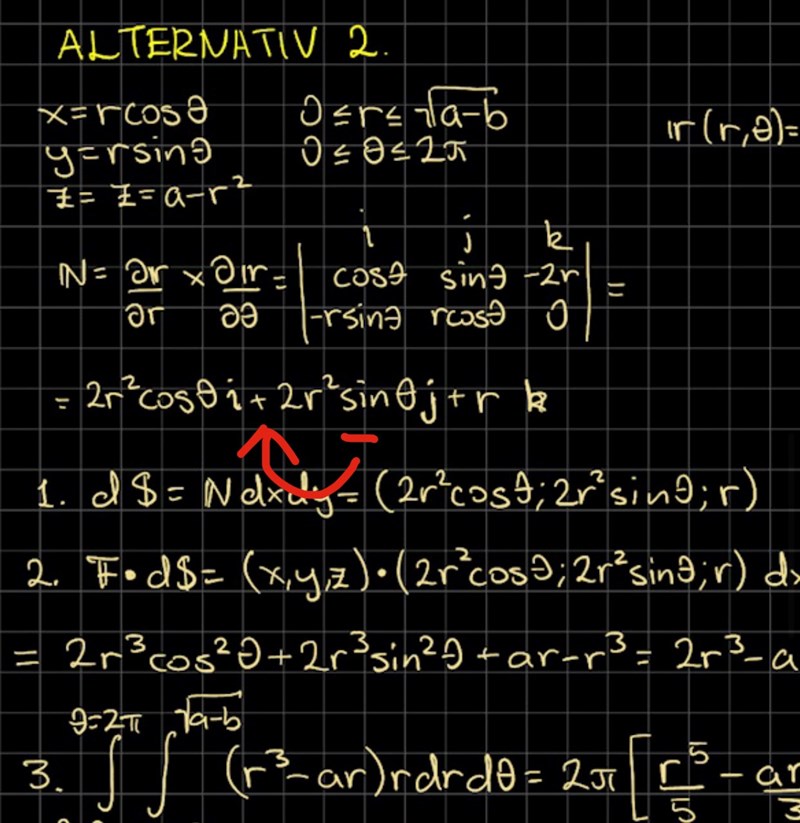 ALTERNATIV 2.
x=rcosθ 0≤r≤√(a-b) r(r,θ)=
y=rsinθ 0≤θ≤2π
z= z=a-r²
i j k
N= ∂r/∂r × ∂r/∂θ = | cosθ sinθ -2r | =
| -rsinθ rcosθ 0 |
= 2r²cosθ i + 2r²sinθ j + r k
−
1. dS = N dxdy = (2r²cosθ; 2r²sinθ; r)
2. F•dS = (x,y,z)•(2r²cosθ; 2r²sinθ; r) dx
= 2r³cos²θ + 2r³sin²θ + ar - r³ = 2r³ - a
θ=2π √(a-b)
3. ∫ ∫ (r³-ar)rdrdθ = 2π [ r⁵/5 - ar/3